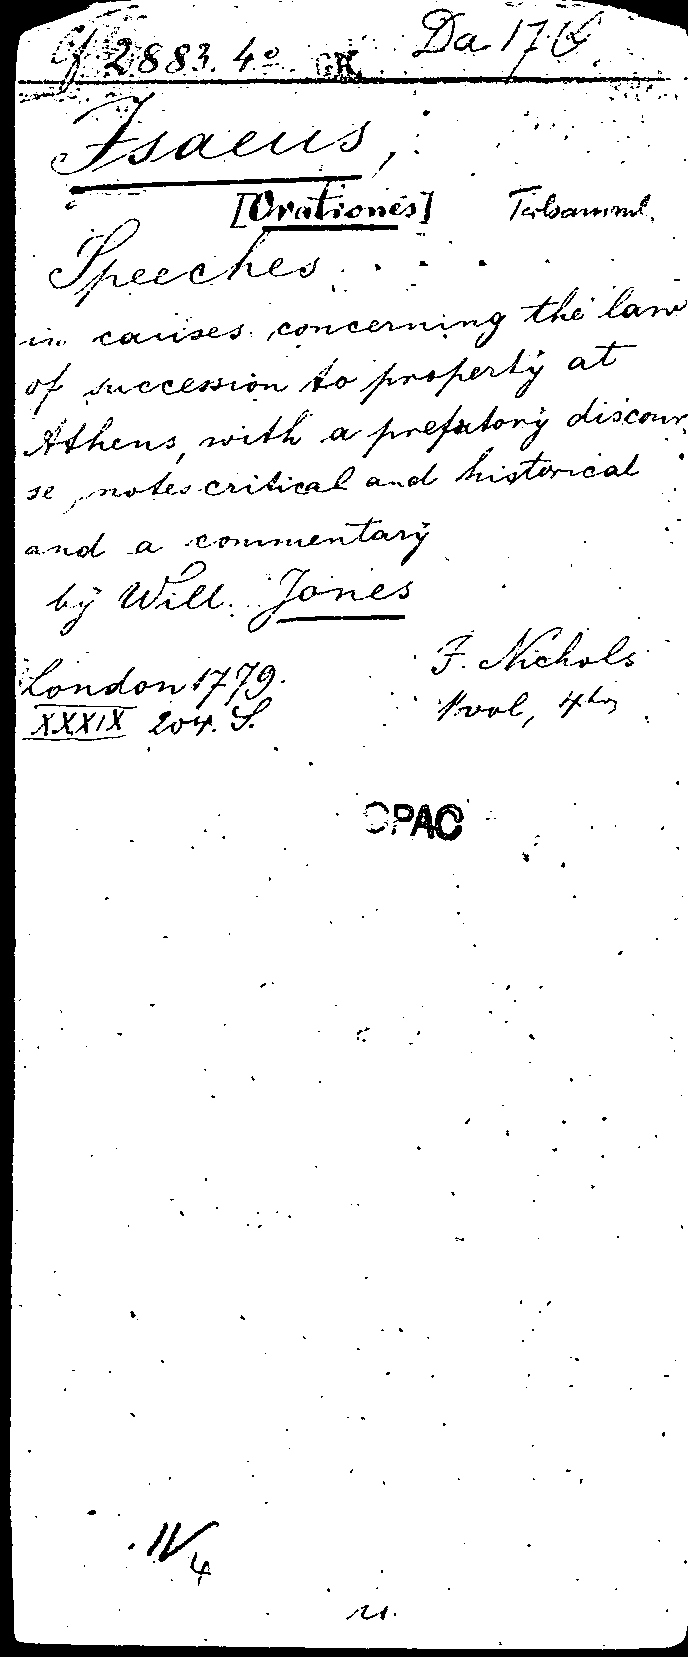 Cf 2883. 4° GK Da 17
Isaeus,
[Orationes] Teilsamml.
Speeches
in causes concerning the law
of succession to property at
Athens, with a prefatory discour
se, notes critical and historical
and a commentary
by Will. Jones
London 1779. F. Nichols
XXXIX 204. S. 1 vol, 4to
OPAC
IV/4